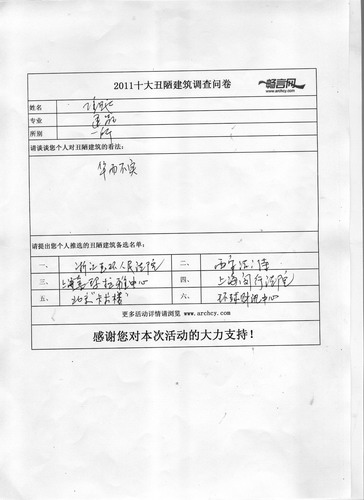 2011十大丑陋建筑调查问卷
畅言网
www.archcy.com
姓名
专业 建筑
所别 一所
请谈谈您个人对丑陋建筑的看法：
华而不实
请提出您个人推选的丑陋建筑备选名单：
一、 浙江 人民法院 二、 西安法门寺
三、 上海 中心 四、 上海闵行法院
五、 北京"卡 楼" 六、 环球 中心
更多活动详情请浏览 www.archcy.com
感谢您对本次活动的大力支持！